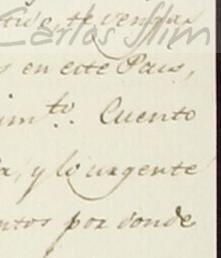 te vengas
Carlos Slim
s en este Pais,
im.to. Cuento
a, y lo urgente
ntos por donde